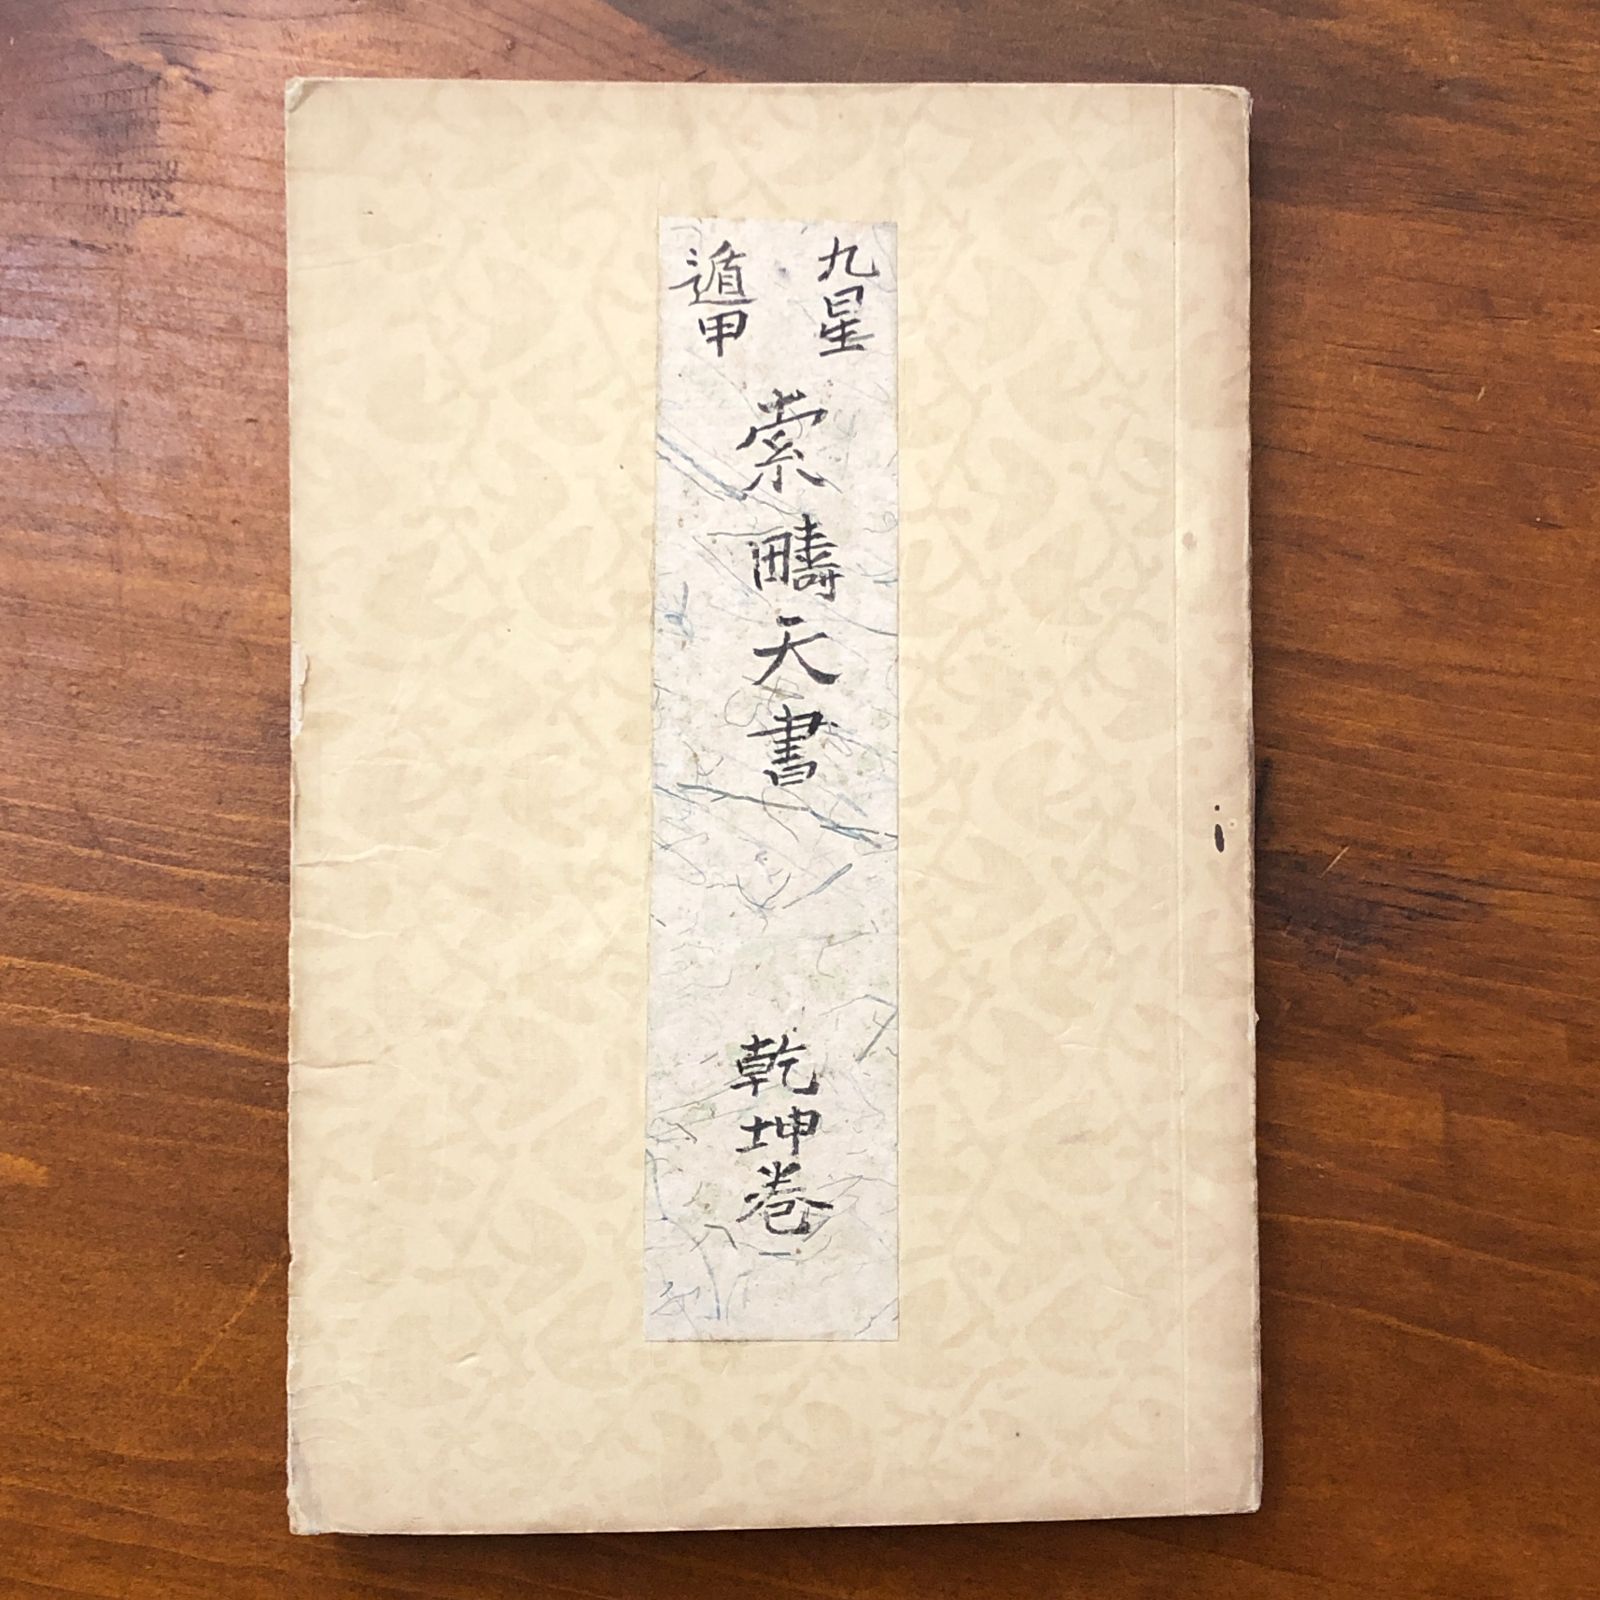 九星
遁甲
索疇天書
乾坤巻